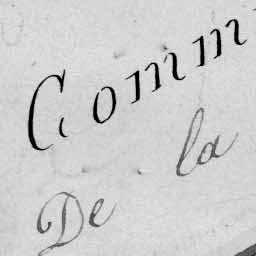 Comm
De la